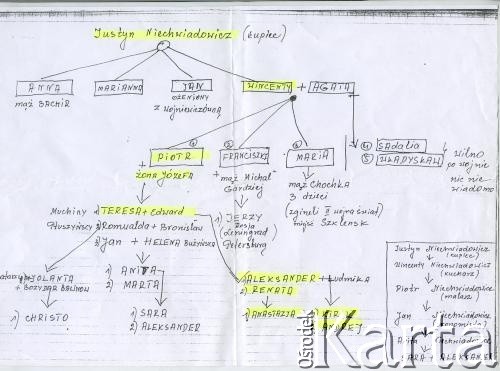 Justyn Niechwiadowicz (kupiec)
ANNA
mąż BACHIR
MARIANNA
JAN
ożeniony
WINCENTY + AGATA
PIOTR
+
żona Józefa
FRANCISZKA
+ mąż Michał
MARIA
mąż Chochka
3 dzieci
(zginęli II wojna świat.)
④ SADALIA
⑤ WŁADYSŁAW
Wilno
po wojnie
nic nie
wiadomo
1) TERESA + Edward
2) Romualda + Bronisław
3) Jan + HELENA
1) JERZY
Rosja
(Leningrad
Petersburg
JOLANTA
1) CHRISTO
1) ANITA
2) MARTA
1) SARA
2) ALEKSANDER
1) ALEKSANDER + Ludmiła
2) RENATA
1) ANASTAZJA
1)
2) ANDREJ
Justyn Niechwiadowicz
(kupiec)
Wincenty Niechwiadowicz
(kucharz)
Piotr Niechwiadowicz
(malarz)
Jan Niechwiadowicz
SARA + ALEKSANDER
ośrodek
Karta